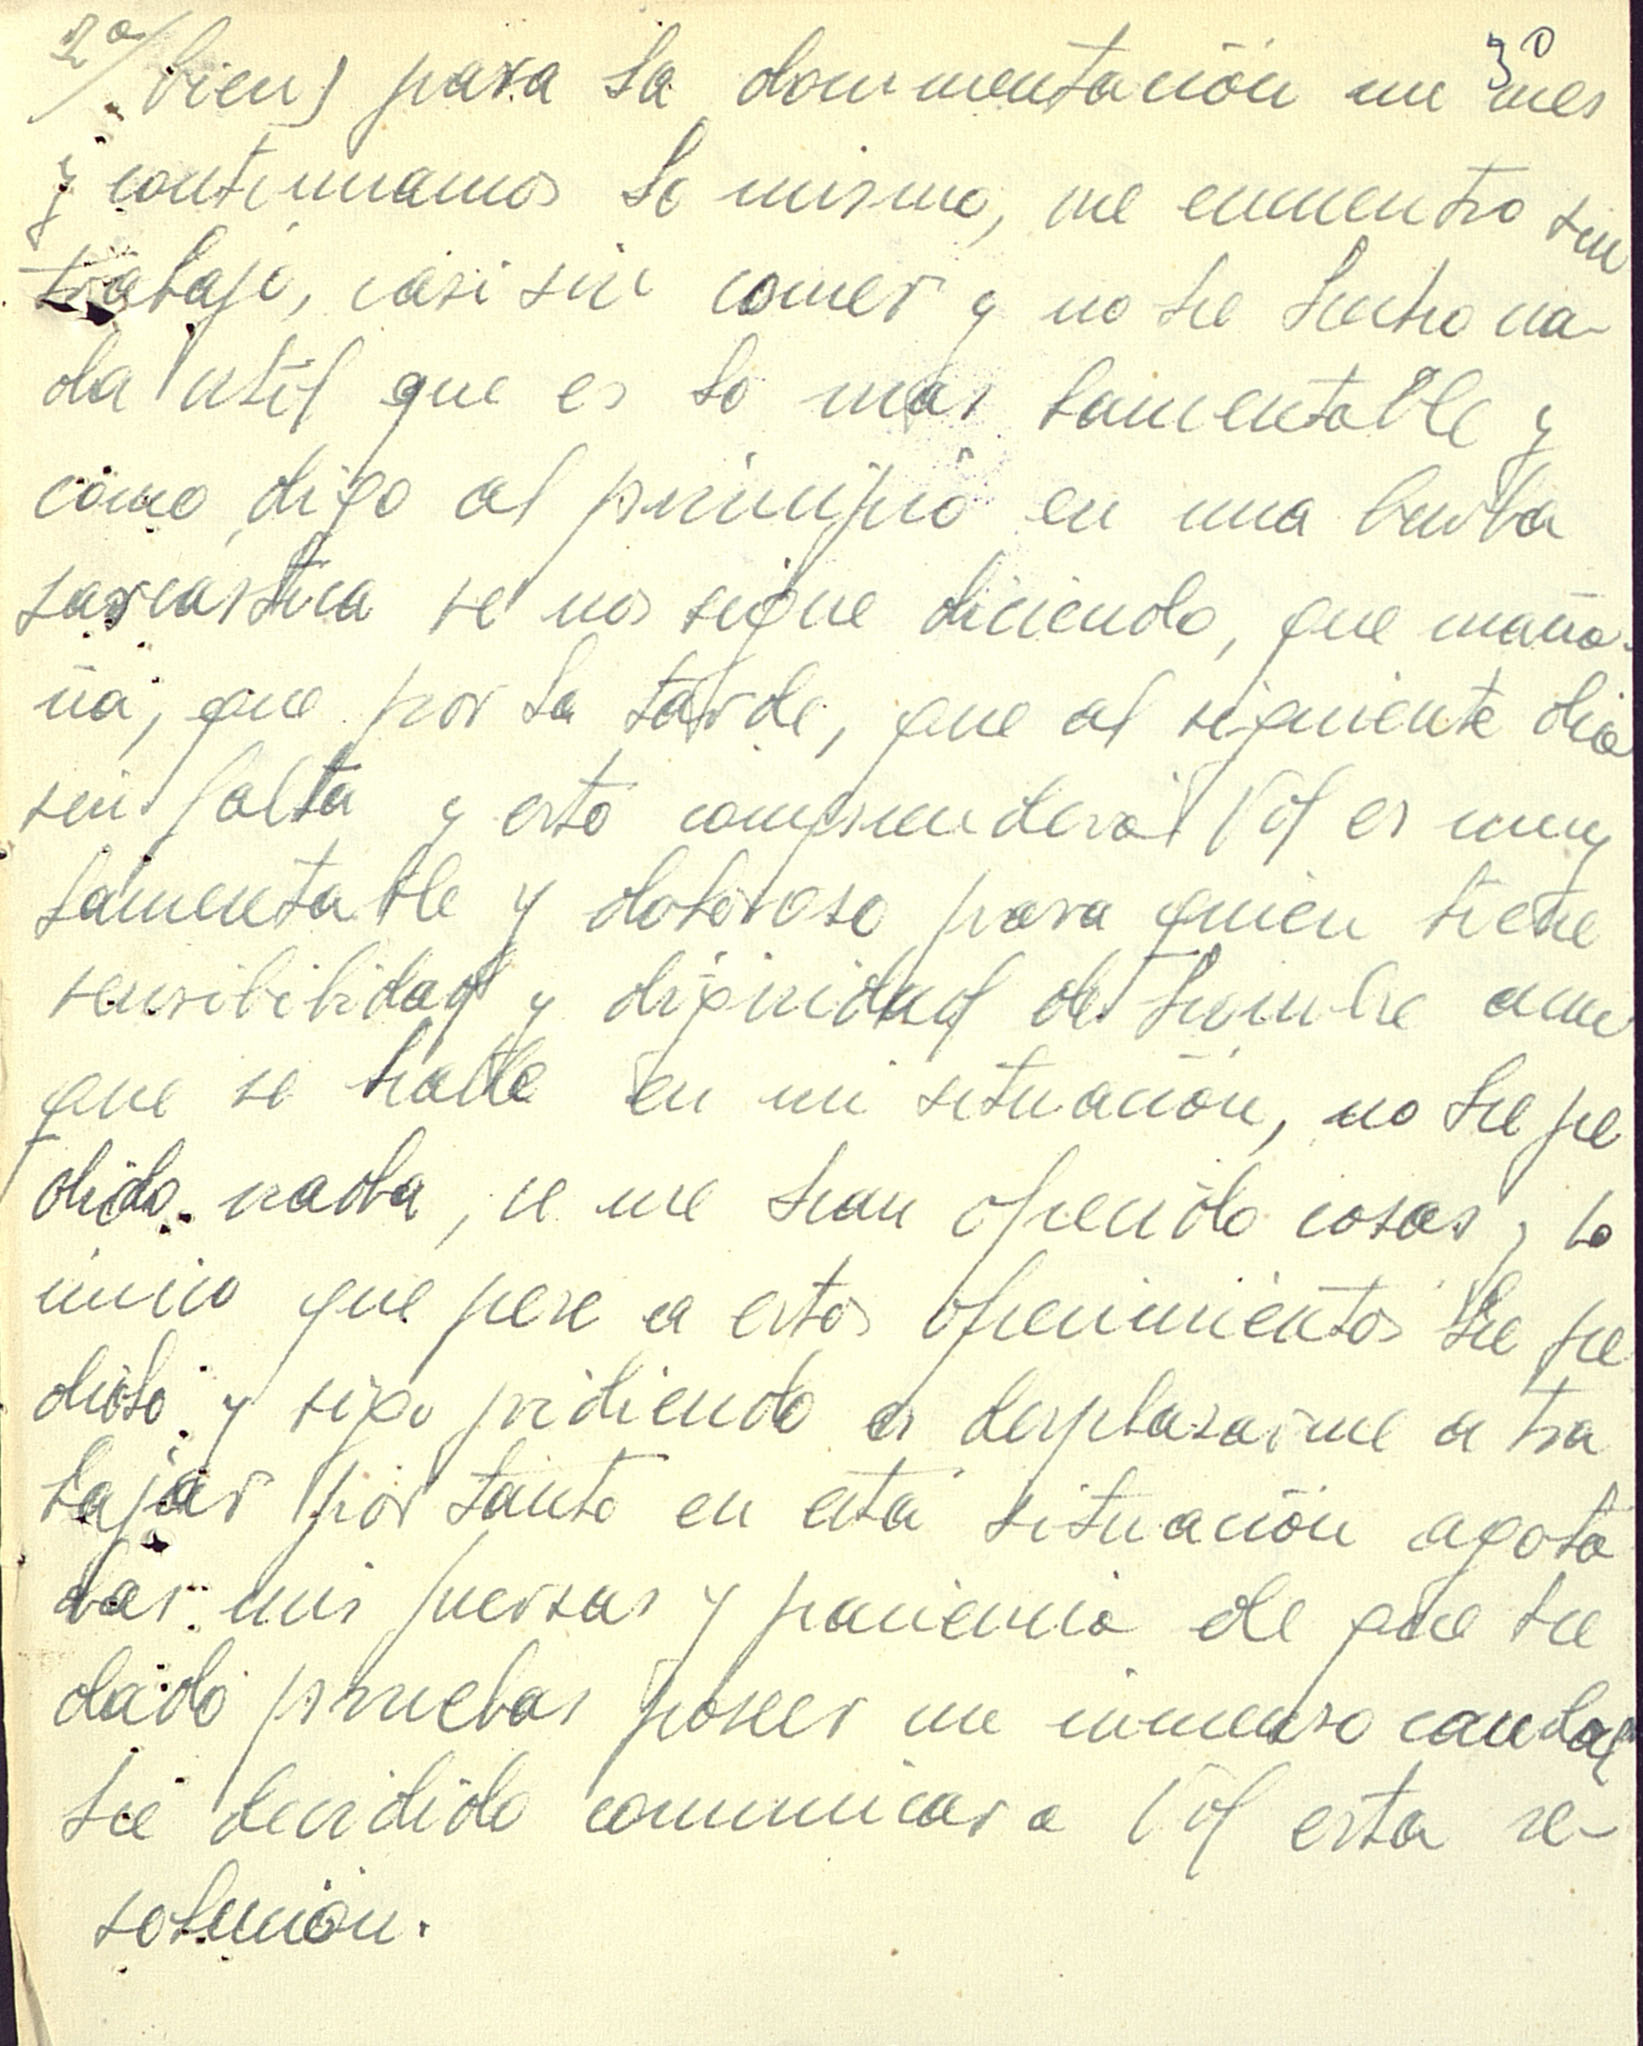 2º/ 3º
bien) para la documentación un mes
y continuamos lo mismo, me encuentro sin
trabajo, casi sin comer y no he hecho na-
da util que es lo mas lamentable y
como digo al principio en una burla
sarcastica se nos sigue diciendo, que maña-
na, que por la tarde, que al siguiente dia
sin falta y esto comprenderá Vd es muy
lamentable y doloroso para quien tiene
sensibilidad y dignidad de hombre aun
que se halle en mi situación, no he pe
dido nada, se me han ofrecido cosas, lo
unico que pese a estos ofrecimientos he pe
dido y sigo pidiendo es desplasarme a tra
bajar por tanto en esta situación agota
das mis fuersas y paciencia de que he
dado pruebas poseer un inmenso caudal
he decidido comunicar a Vd esta re-
solución.